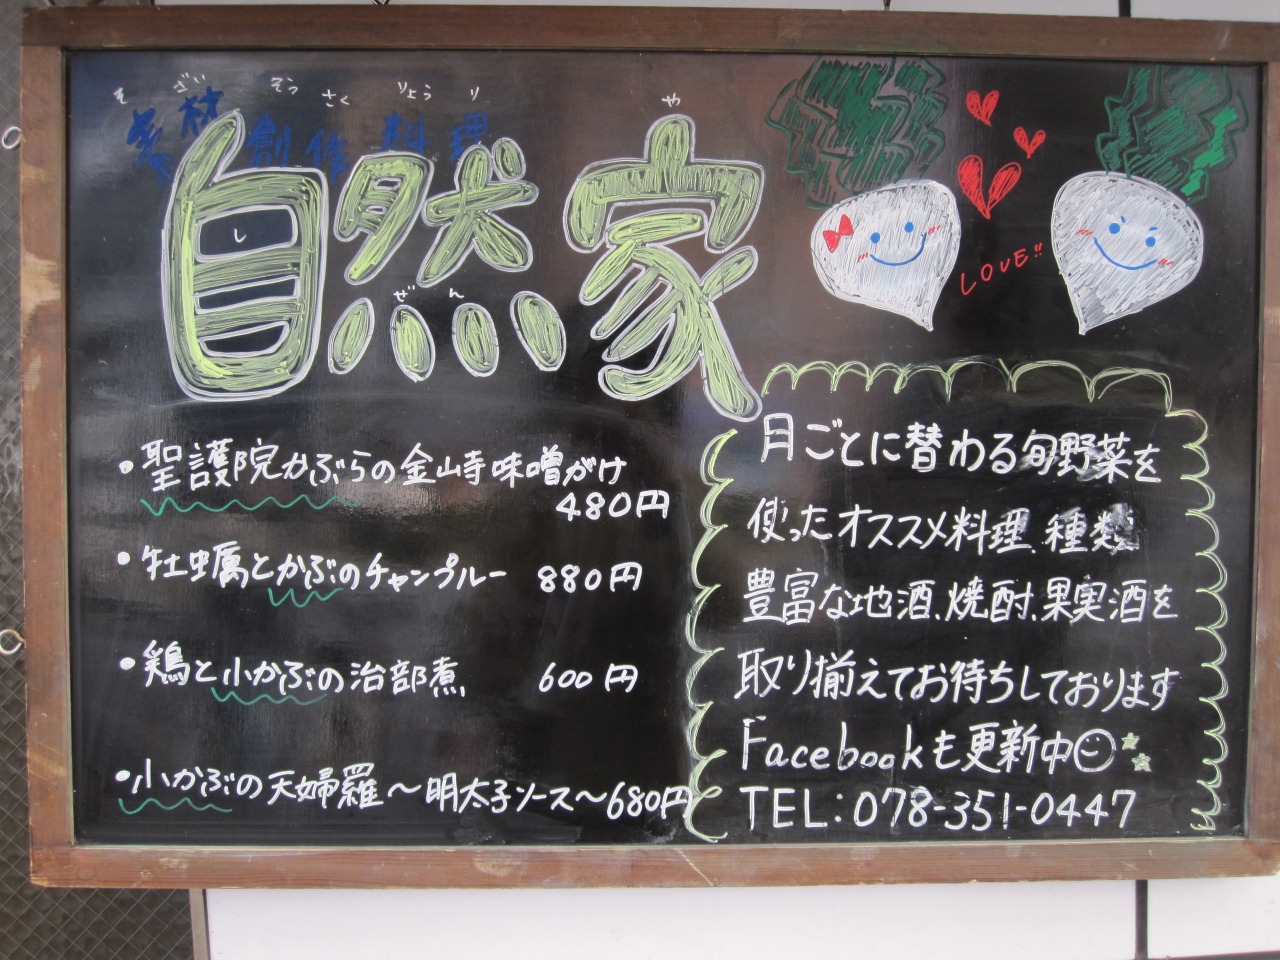 そざい そうさく りょうり
素材 創作料理
しぜんや
自然家
LOVE!!
・聖護院かぶらの金山寺味噌がけ
480円
・牡蠣とかぶのチャンプルー 880円
・鶏と小かぶの治部煮 600円
・小かぶの天婦羅〜明太子ソース〜680円
月ごとに替わる旬野菜を
使ったオススメ料理、種類
豊富な地酒、焼酎、果実酒を
取り揃えてお待ちしております
Facebookも更新中
TEL:078-351-0447